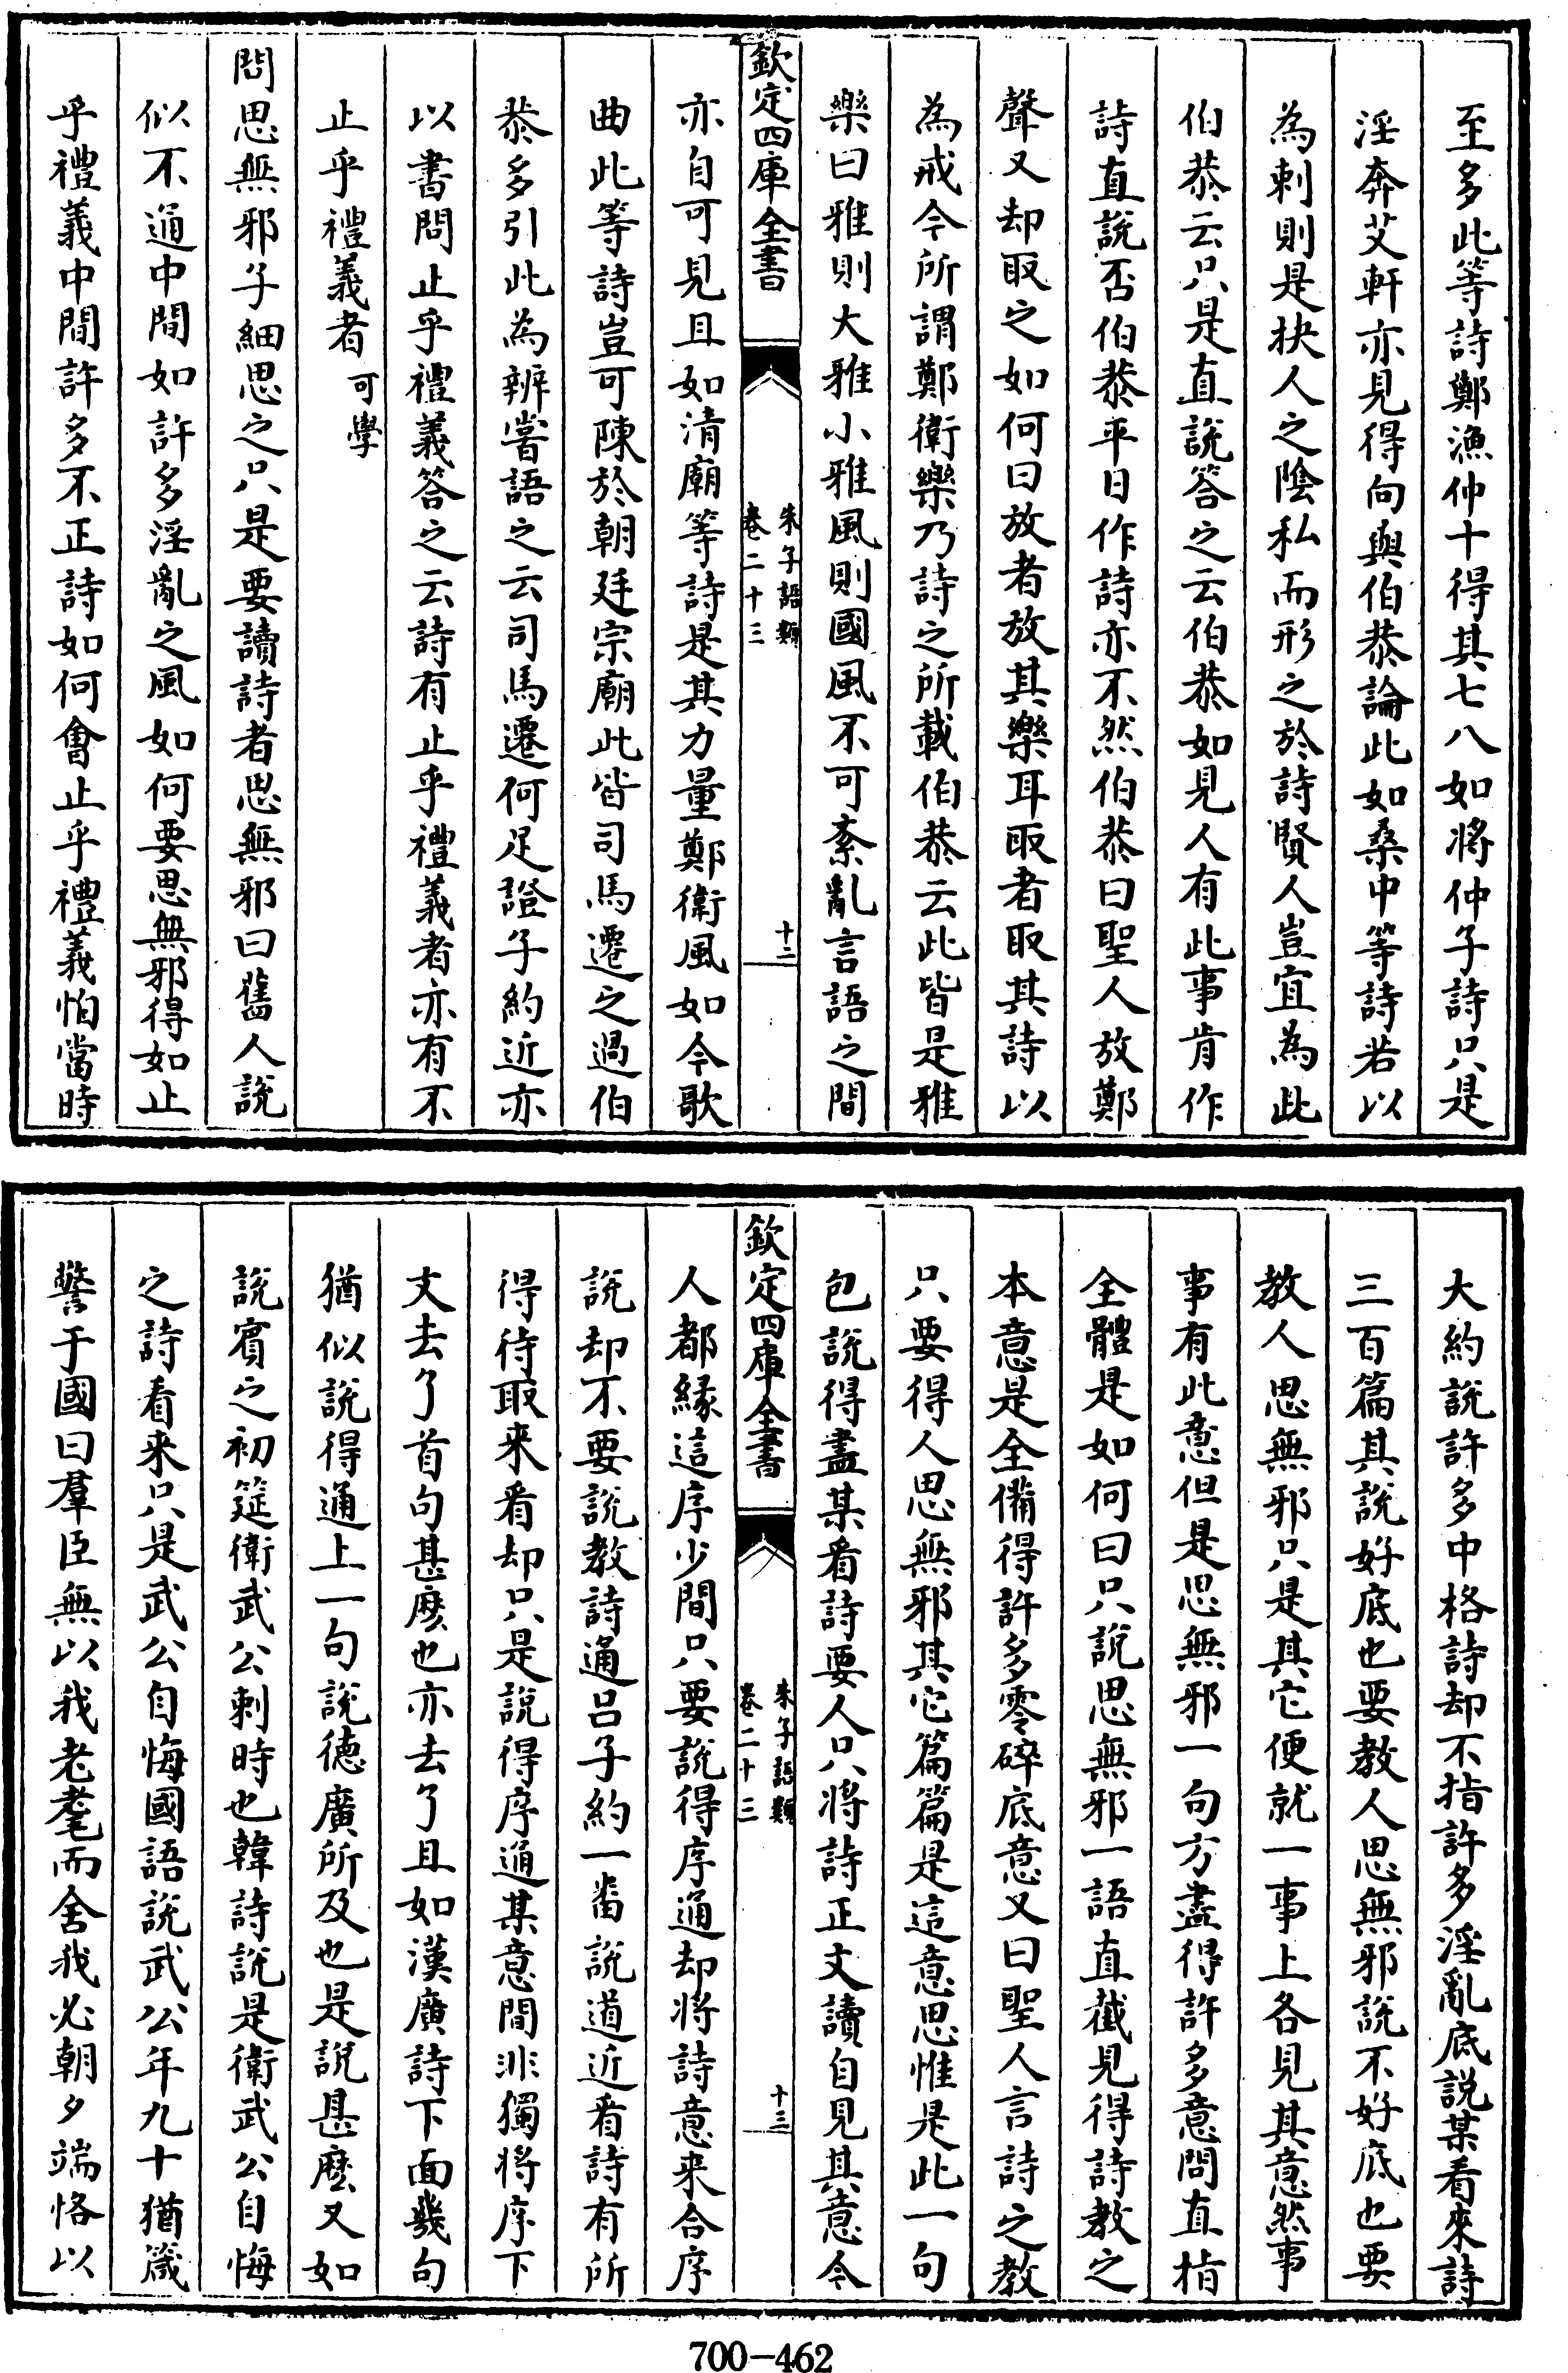 至多此等詩鄭漁仲十得其七八如將仲子詩只是
淫奔艾軒亦見得向與伯恭論此如桑中等詩若以
為刺則是抉人之陰私而形之於詩賢人豈宜為此
伯恭云只是直說答之云伯恭如見人有此事肯作
詩直說否伯恭平日作詩亦不然伯恭曰聖人放鄭
聲又却取之如何曰放者放其樂耳取者取其詩以
為戒今所謂鄭衛樂乃詩之所載伯恭云此皆是雅
樂曰雅則大雅小雅風則國風不可紊亂言語之間
欽定四庫全書
朱子語類
卷二十三
十二
亦自可見且如清廟等詩是其力量鄭衛風如今歌
曲此等詩豈可陳於朝廷宗廟此皆司馬遷之過伯
恭多引此為辨嘗語之云司馬遷何足證子約近亦
以書問止乎禮義答之云詩有止乎禮義者亦有不
止乎禮義者可學
問思無邪子細思之只是要讀詩者思無邪曰舊人說
似不通中間如許多淫亂之風如何要思無邪得如止
乎禮義中間許多不正詩如何會止乎禮義怕當時
大約說許多中格詩却不指許多淫亂底說某看來詩
三百篇其說好底也要教人思無邪說不好底也要
教人思無邪只是其它便就一事上各見其意然事
事有此意但是思無邪一句方盡得許多意問直指
全體是如何曰只說思無邪一語直截見得詩教之
本意是全備得許多零碎底意又曰聖人言詩之教
只要得人思無邪其它篇篇是這意思惟是此一句
包說得盡某看詩要人只將詩正文讀自見其意今
欽定四庫全書
朱子語類
卷二十三
十三
人都緣這序少間只要說得序通却將詩意來合序
說却不要說教詩通呂子約一畨說道近看詩有所
得待取来看却只是說得序通某意間非獨將序下
文去了首句甚麽也亦去了且如漢廣詩下面幾句
猶似說得通上一句說德廣所及也是說甚麽又如
說賓之初筵衛武公刺時也韓詩說是衛武公自悔
之詩看来只是武公自悔國語說武公年九十猶箴
警于國曰羣臣無以我老耄而舍我必朝夕端恪以
700-462